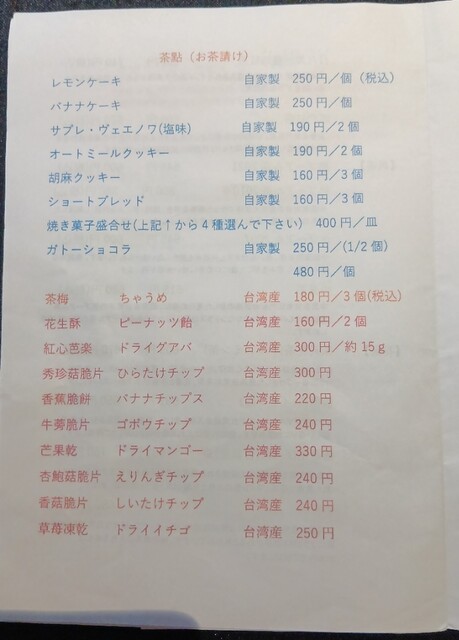 茶點（お茶請け）
レモンケーキ 自家製 250円／個（税込）
バナナケーキ 自家製 250円／個
サブレ・ヴェエノワ(塩味) 自家製 190円／2個
オートミールクッキー 自家製 190円／2個
胡麻クッキー 自家製 160円／3個
ショートブレッド 自家製 160円／3個
焼き菓子盛合せ(上記↑から4種選んで下さい) 400円／皿
ガトーショコラ 自家製 250円／(1/2個)
480円／個
茶梅 ちゃうめ 台湾産 180円／3個(税込)
花生酥 ピーナッツ飴 台湾産 160円／2個
紅心芭楽 ドライグアバ 台湾産 300円／約15g
秀珍菇脆片 ひらたけチップ 台湾産 300円
香蕉脆餅 バナナチップス 台湾産 220円
牛蒡脆片 ゴボウチップ 台湾産 240円
芒果乾 ドライマンゴー 台湾産 330円
杏鮑菇脆片 えりんぎチップ 台湾産 240円
香菇脆片 しいたけチップ 台湾産 240円
草苺凍乾 ドライイチゴ 台湾産 250円